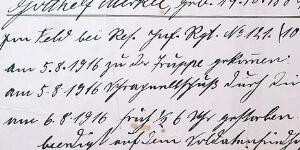 Gotthelf Merkel, geb. 19.10.18
im Feld bei Res. Inf. Rgt. No 121. /10
am 5.8.1916 zu der Truppe gekommen.
am 5.8.1916 Schrapnellschuß durch
am 6.8.1916 früh ½ 6 Uhr gestorben
beerdigt auf dem Soldatenfriedho